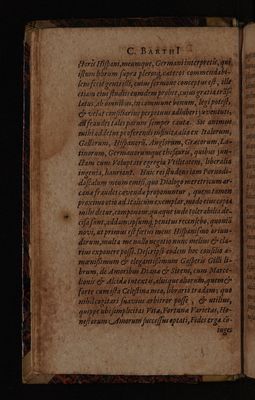 C. BARTHI
ctoris Hispani, meumque, Germani interpretis, qui,
istum librum supra plerosq. cæteros commendabi-
lem sciat gentibus, cuius sermone conceptus est,
etiam eius studiis eundem probet, cuius gratia trans-
latus. Ab omnibus, in commune bonum, legi potest,
& velut consiliarius perpetuus adhiberi juventuti,
ad fraudes tales parum semper cautæ. Sin animus
mihi addetur, proferendi instituta alia ex Italorum,
Gallorum, Hispanorum, Anglorum, Græcorum, La-
tinorum, Germanorumque thesauris, quibus jun-
ctam cum Voluptate egregia Vtilitatem, liberalia
ingenia, hauriant. Huic rei studens iam Pornodi-
dascalum meum emisi, quo Dialogo meretricum ar-
cana fraudes cavenda proponuntur, quem tamen
proximo otio ad Italicum exemplar, modo eius copia
mihi detur, componam, quaque inde tolerabilia de-
cisa sunt, addam, ipsumq. penitus recensebo, quando
novi, ut primus est fœtus meus Hispanismo oriun-
dorum, multa me nullo negotio nunc melius & cla-
rius exponere posse. Descripsi eodem hoc consilio a-
mœnissimum & elegantissimum Gasparis Gilli li-
brum, de Amoribus Dianæ & Sireni, cum Marce-
lionis & Alcidæ intextus, aliisque aliorum, quem &
forte cum ista Celestina mea, librariis tradam; quo
nihil cogitari suavius arbitror posse, & utilius,
quippe ubi simplicitas Vitæ, Fortunæ Varietas, Ho-
nestorum Amorum successus optati, Fides erga Co-
iuges